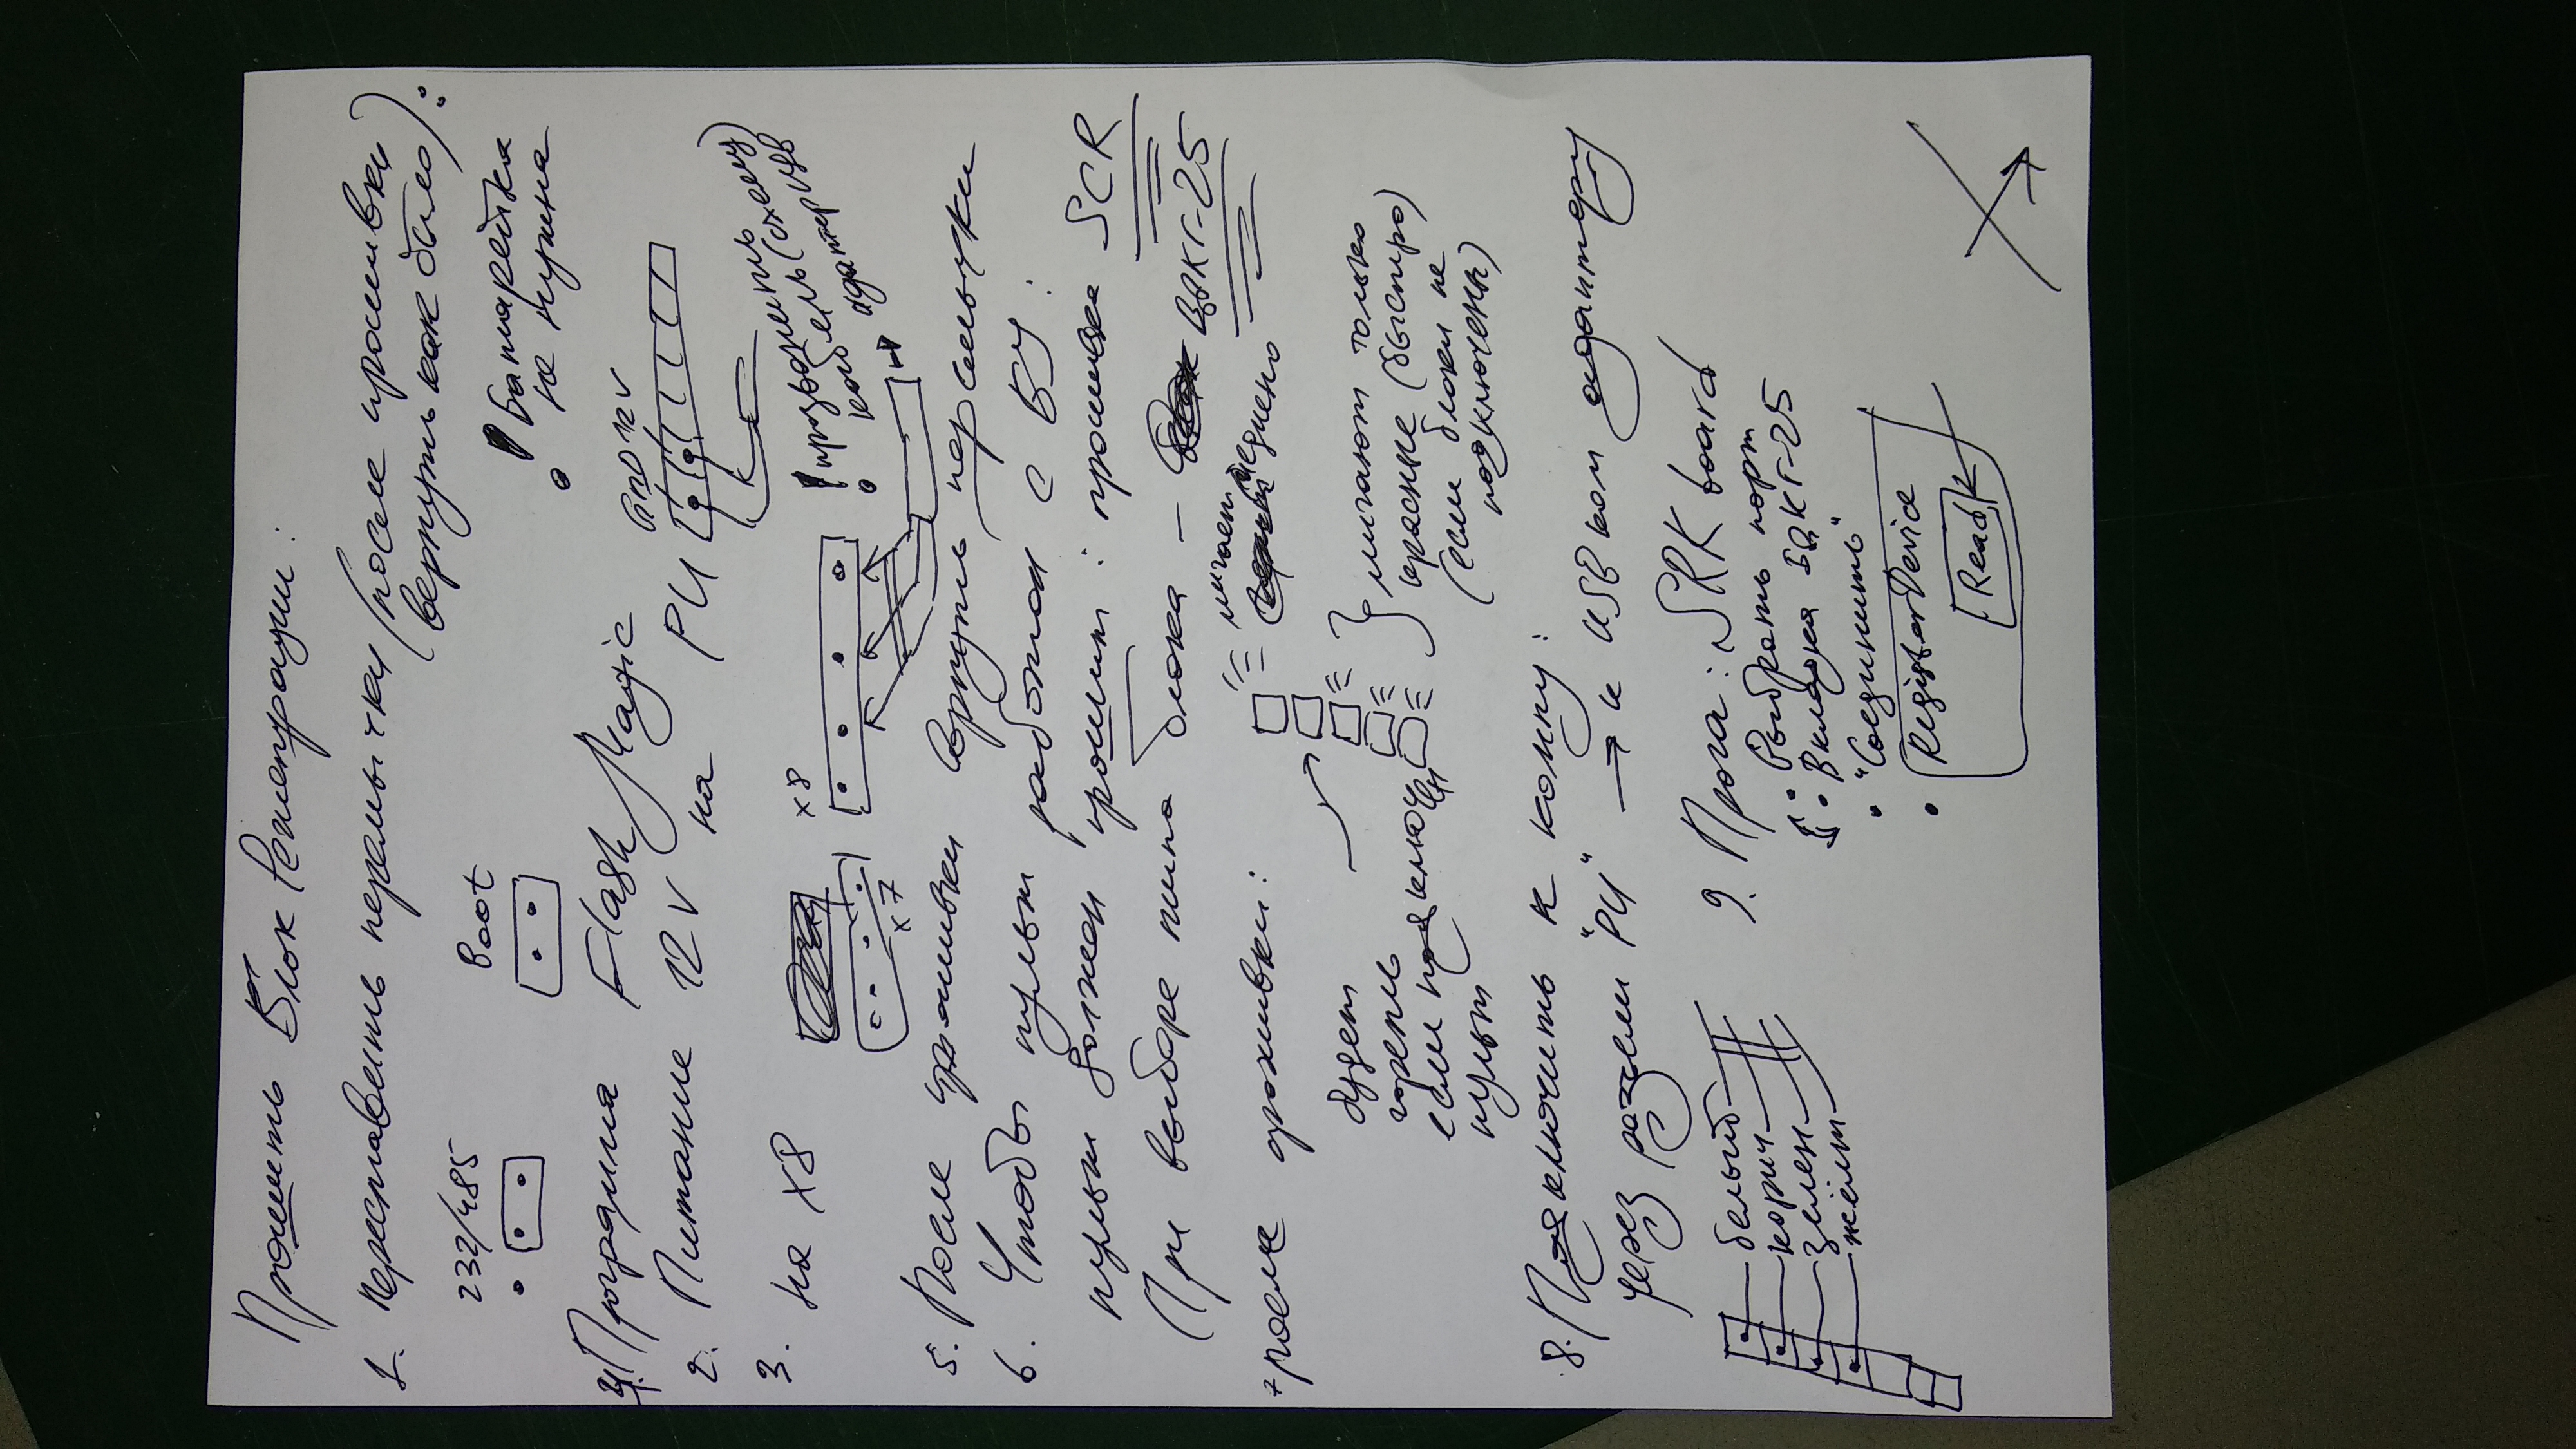 Прошить Блок Регистрации:
1. Переставить перемычки (после прошивки
вернуть как было):
• 232/485
Boot
• ! батарейка
не нужна
4. Программа Flash Magic
GND 12V
2. Питание 12V на РЦ
3. на X8
x8
x7
! прозвонить
кабель (схему)
адаптер
5. После прошивки вернуть перемычки
6. Чтобы пульт работал с БУ:
пульт должен прошит: прошивка SCR
(При выборе типа блока –
7 После прошивки:
мигает
медленно
будет
гореть
если подключен
пульт
мигают только
красные (быстро)
(если блоки не
подключены)
8. Подключить к компу:
через разъем "РЦ" → к USB ком адаптеру
белый
корич
зелен
жёлт
9. Прога: SRK board
• Выбрать порт
• Вкладка БЦКГ-25
• "Соединить"
• Register Device
Read